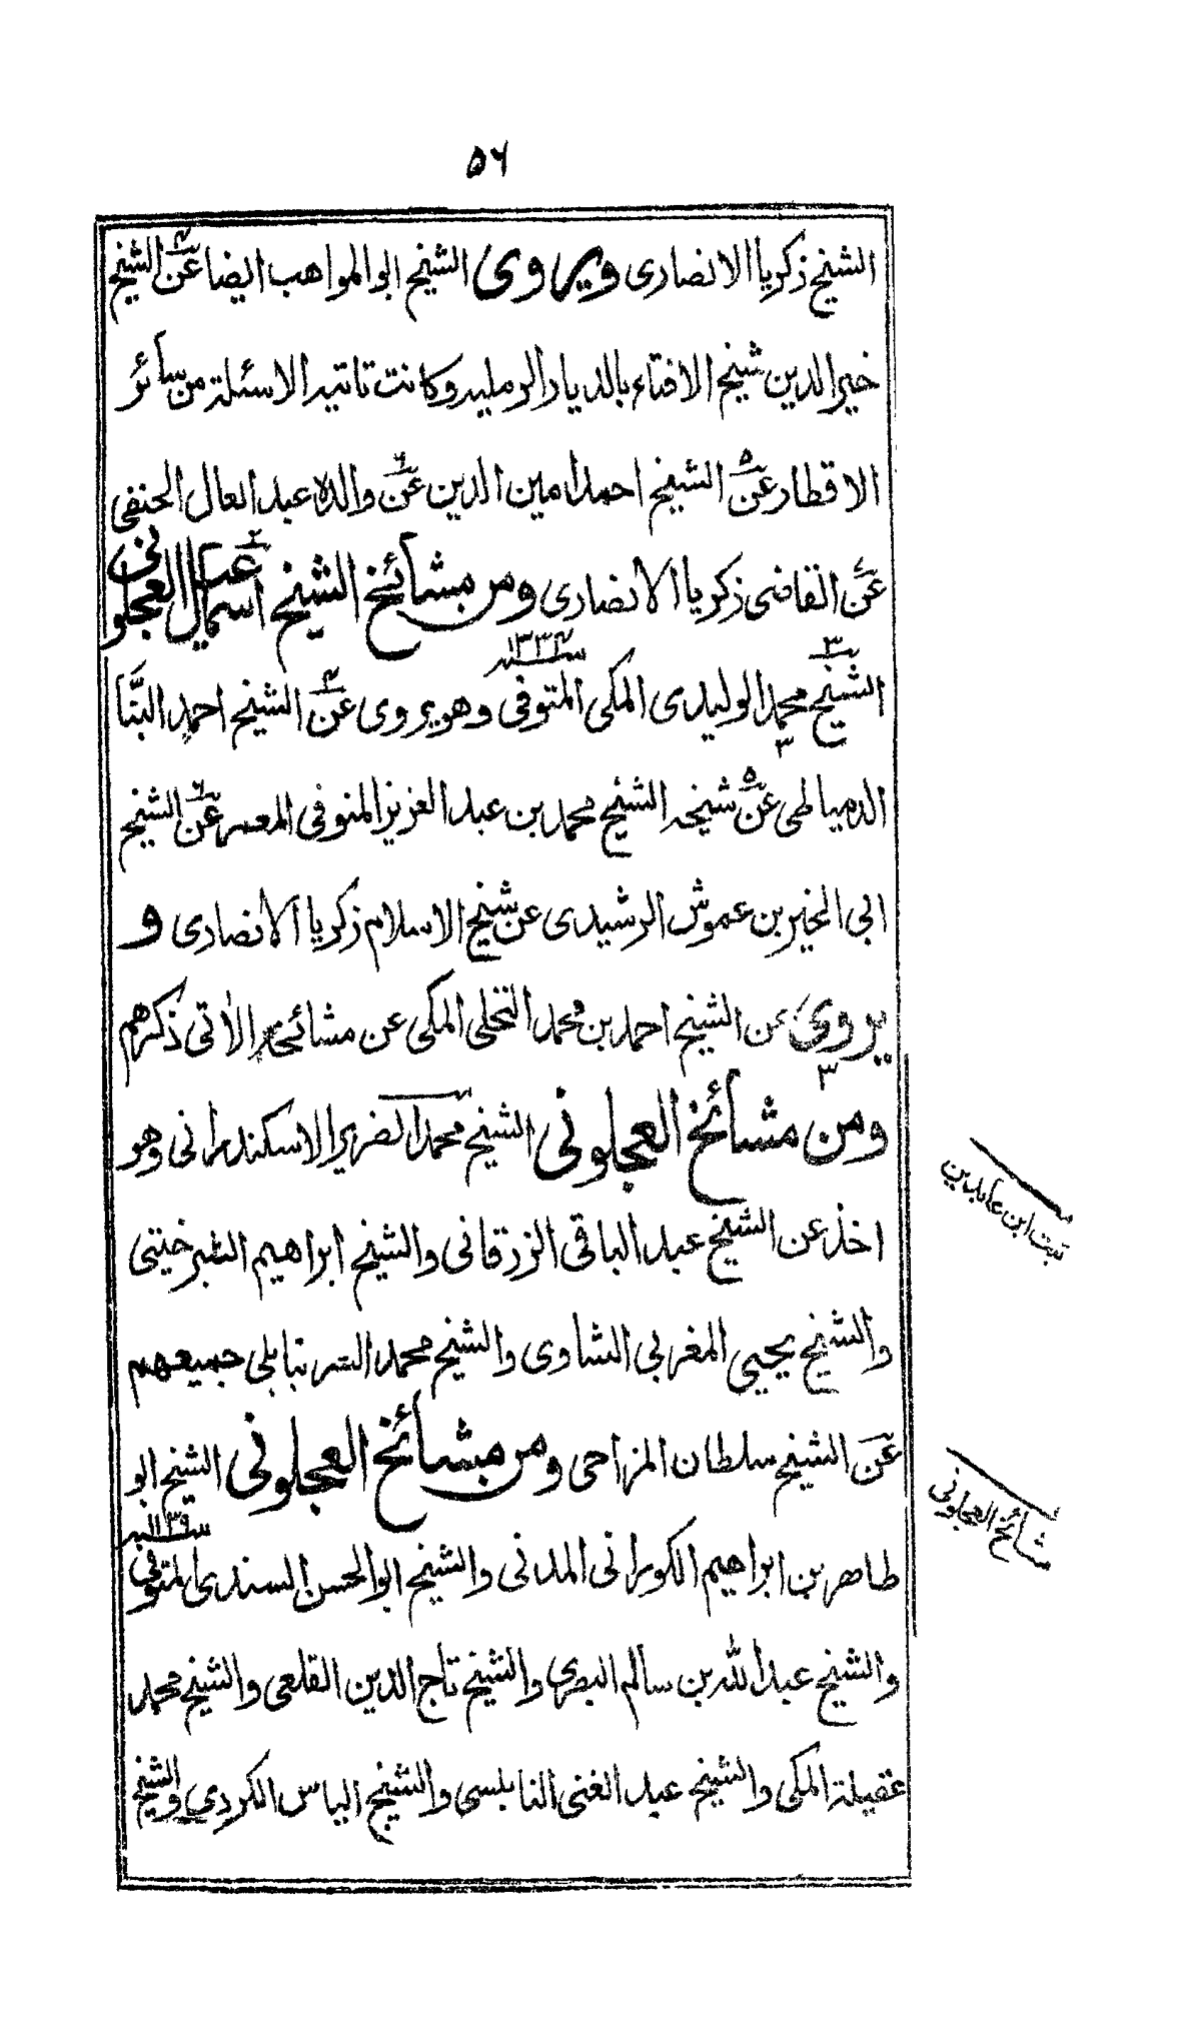 ٥٦
الشيخ زكريا الانصارى ويروى الشيخ ابو المواهب ايضا عن الشيخ
خير الدين شيخ الافتاء بالديار الرمليه وكانت تاتيه الاسئلة من سائر
الاقطار عن الشيخ احمد امين الدين عن والده عبد العال الحنفى
عن القاضى زكريا الانصارى ومن مشائخ الشيخ اسمعيل العجلونى
الشيخ محمد الوليدى المكى المتوفى وهو يروى عن الشيخ احمد البنّا
الدمياطى عن شيخه الشيخ محمد بن عبد العزيز المنوفى المعمر عن الشيخ
ابى الخير بن عموش الرشيدى عن شيخ الاسلام زكريا الانصارى و
يروى عن الشيخ احمد بن محمد النخلى المكى عن مشائخه الاٰتى ذكرهم
ومن مشائخ العجلونى الشيخ محمد الضرير الاسكندرانى وهو
اخذ عن الشيخ عبد الباقى الزرقانى والشيخ ابراهيم الشبرخيتى
والشيخ يحيى المغربى الشاوى والشيخ محمد الشرنبابلى جميعهم
عن الشيخ سلطان المزاحى ومن مشائخ العجلونى الشيخ ابو
طاهر بن ابراهيم الكورانى المدنى والشيخ ابو الحسن السندى المتوفى
والشيخ عبد الله بن سالم البصرى والشيخ تاج الدين القلعى والشيخ محمد
عقيلة المكى والشيخ عبد الغنى النابلسى والشيخ الياس الكردي والشيخ
ثبت ابن عابدين
مشائخ العجلونى